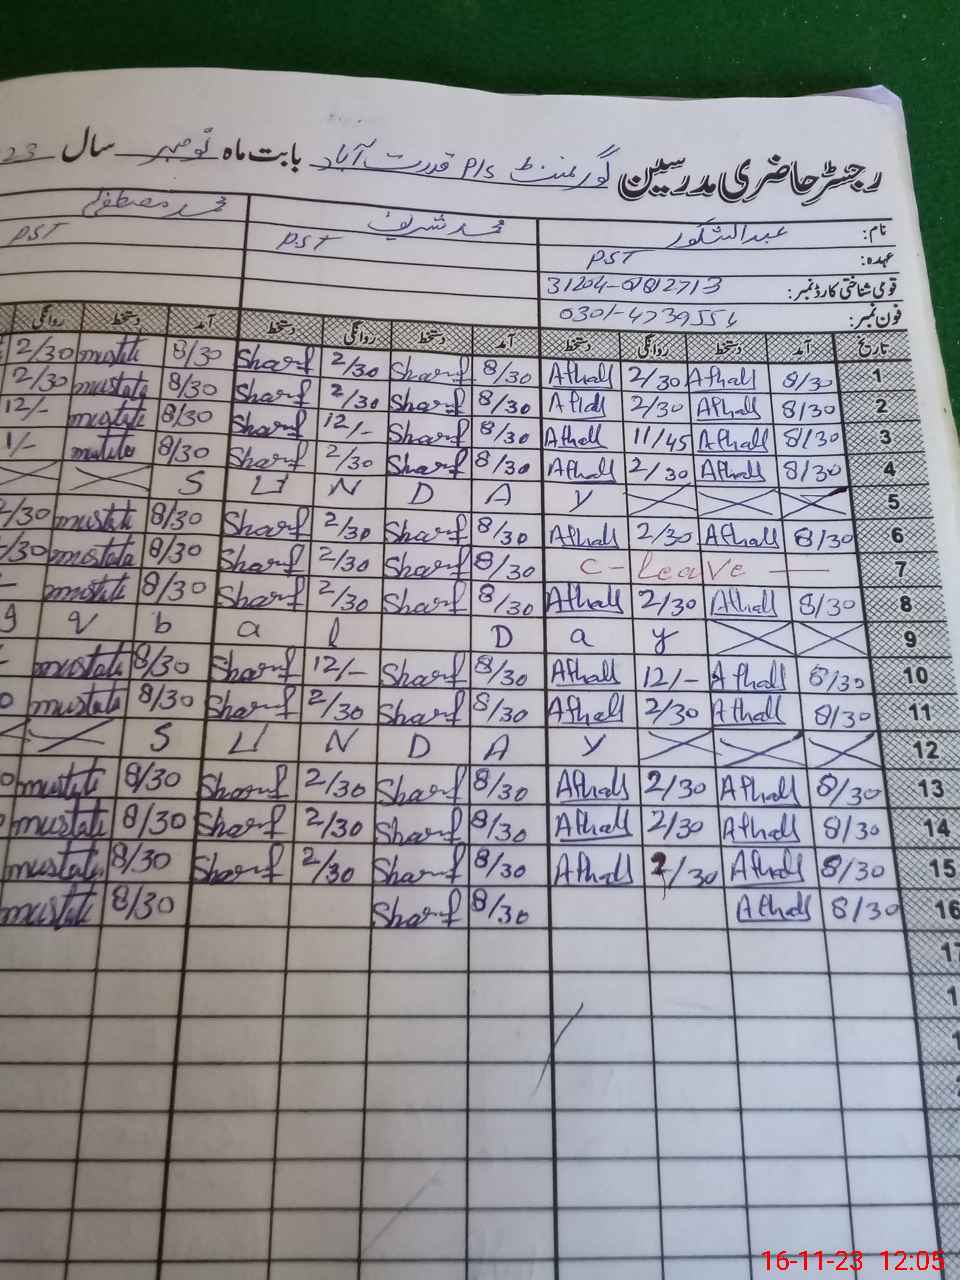 رجسٹر حاضری مدرسین گورنمنٹ P/s قدرت آباد بابت ماہ نومبر سال 23
نام: عبدالشکور محمد شریف محمد مصطفیٰ
عہدہ: PST PST PST
قومی شناختی کارڈ نمبر:
فون نمبر:
تاریخ آمد دستخط روانگی دستخط آمد دستخط روانگی دستخط آمد دستخط روانگی
1 8/30 Afhall 2/30 Afhall 8/30 Sharf 2/30 Sharf 8/30 2/30
2 8/30 Afhall 2/30 8/30 Sharf 2/30 Sharf 8/30 mustafe 2/30
3 8/30 Afhall 11/45 Afhall 8/30 Sharf 12/- Sharf 8/30 mustate 12/-
4 8/30 Afhall 2/30 Afhall 8/30 Sharf 2/30 Sharf 8/30 1/-
5 S U N D A Y
6 8/30 Afhall 2/30 Afhall 8/30 Sharf 2/30 Sharf 8/30 /30
7 C-leave 8/30 Sharf 2/30 Sharf 8/30 mustate /30
8 8/30 Afhall 2/30 Afhall 8/30 Sharf 2/30 Sharf 8/30
9 q b a l D a y
10 8/30 Afhall 12/- Afhall 8/30 Sharf 12/- Sharf 8/30 mustate
11 8/30 Afhall 2/30 Afhall 8/30 Sharf 2/30 Sharf 8/30 mustate
12 S U N D A Y
13 8/30 Afhall 2/30 Afhall 8/30 Sharf 2/30 Sharf 8/30
14 8/30 Afhall 2/30 Afhall 8/30 Sharf 2/30 Sharf 8/30 mustate
15 8/30 Afhall 2/30 Afhall 8/30 Sharf 2/30 Sharf 8/30 mustate
16 8/30 Afhall 8/30 Sharf 8/30
16-11-23 12:05